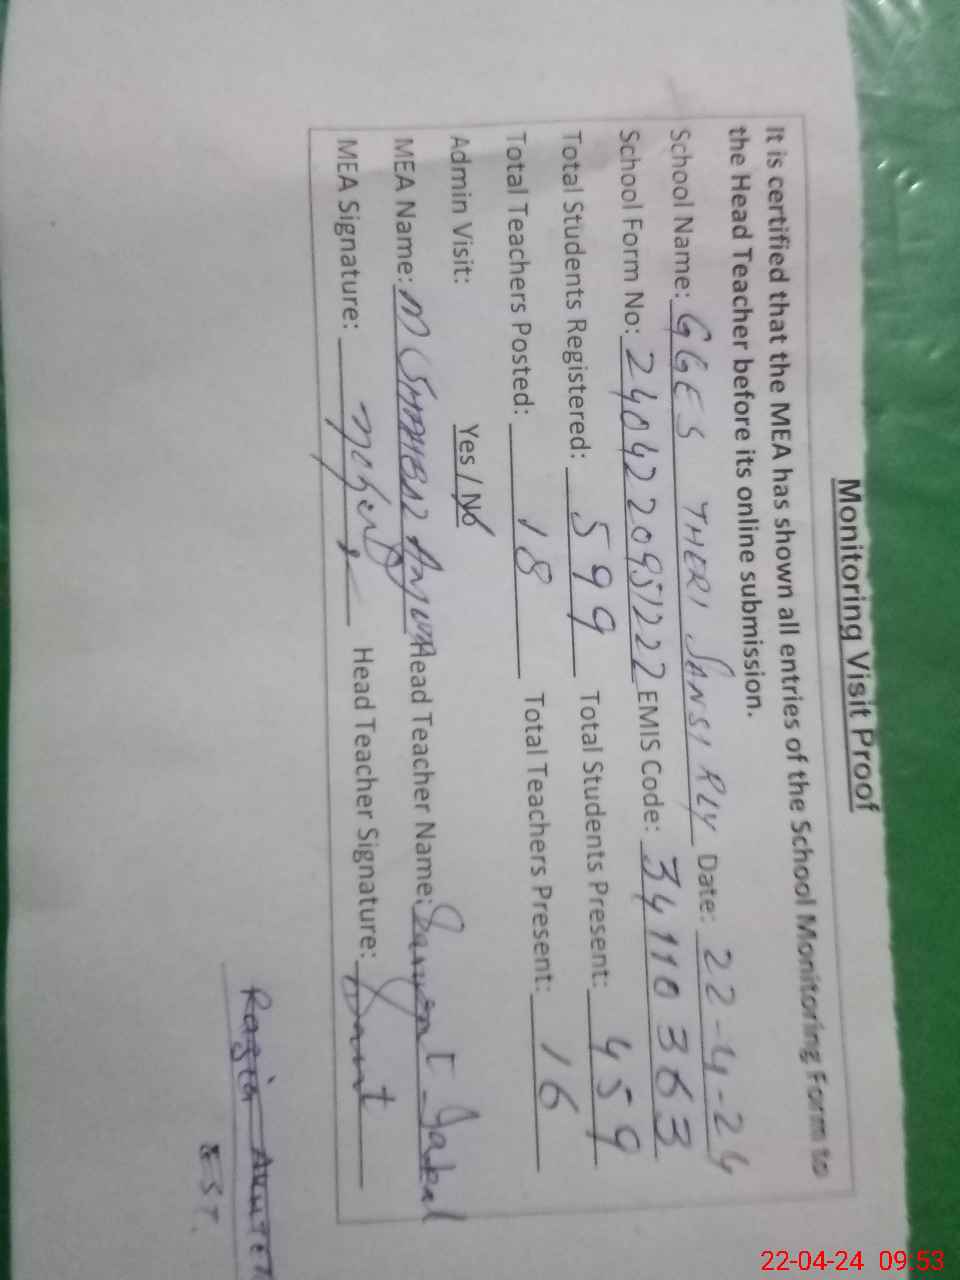 Monitoring Visit Proof
It is certified that the MEA has shown all entries of the School Monitoring Form to
the Head Teacher before its online submission.
School Name: GGES THERI SANSI RLY Date: 22-4-24
School Form No: 24042209S1222 EMIS Code: 34110363
Total Students Registered: 599 Total Students Present: 459
Total Teachers Posted: 18 Total Teachers Present: 16
Admin Visit: Yes / No
MEA Name: M Head Teacher Name:
MEA Signature: Head Teacher Signature:
Razia
EST.
22-04-24 09:53